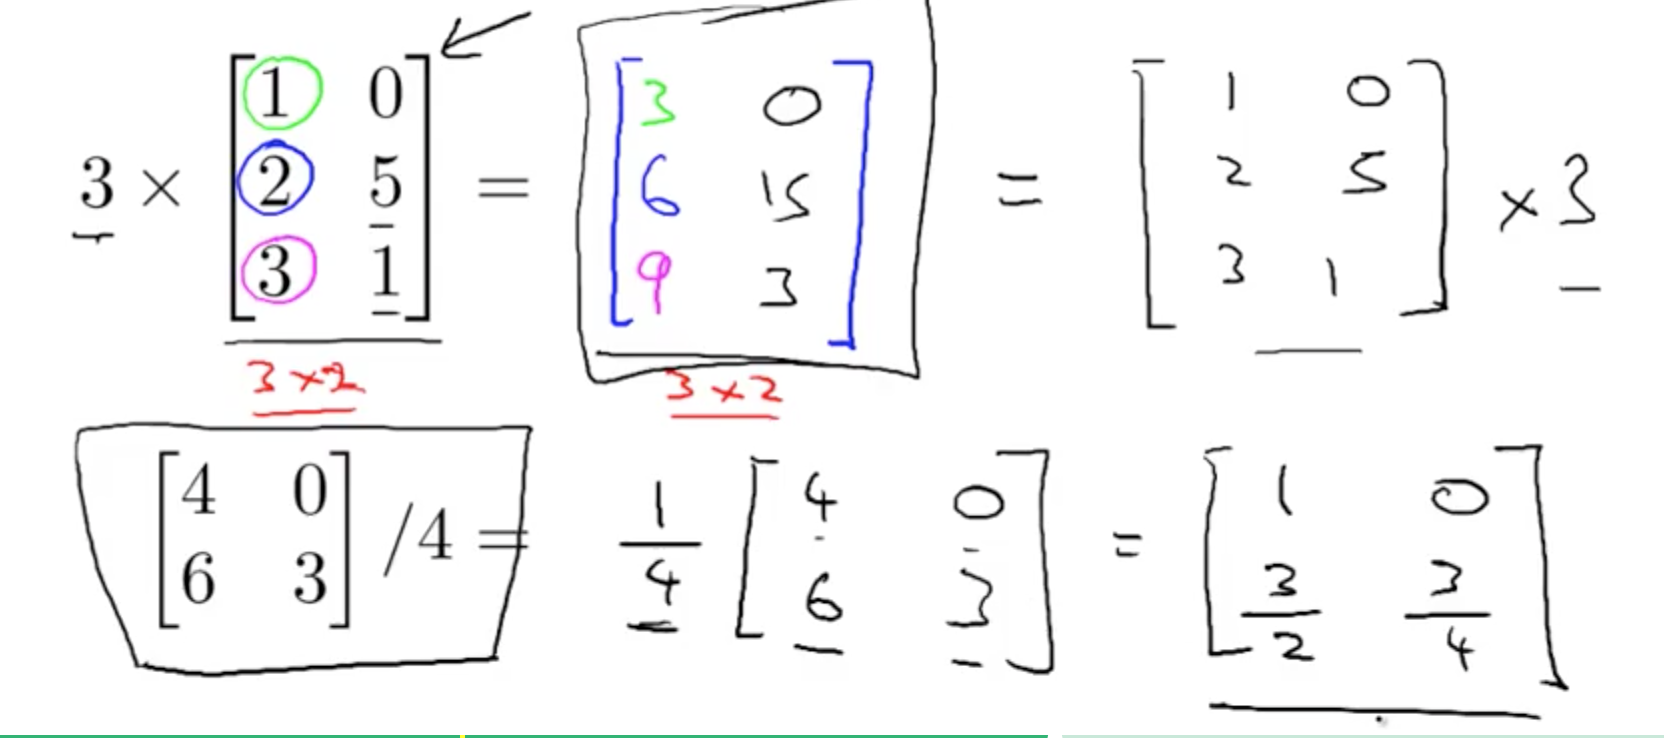 3 × [1 0; 2 5; 3 1] = [3 0; 6 15; 9 3] = [1 0; 2 5; 3 1] × 3
3×2 3×2
[4 0; 6 3] /4 = 1/4 [4 0; 6 3] = [1 0; 3/2 3/4]